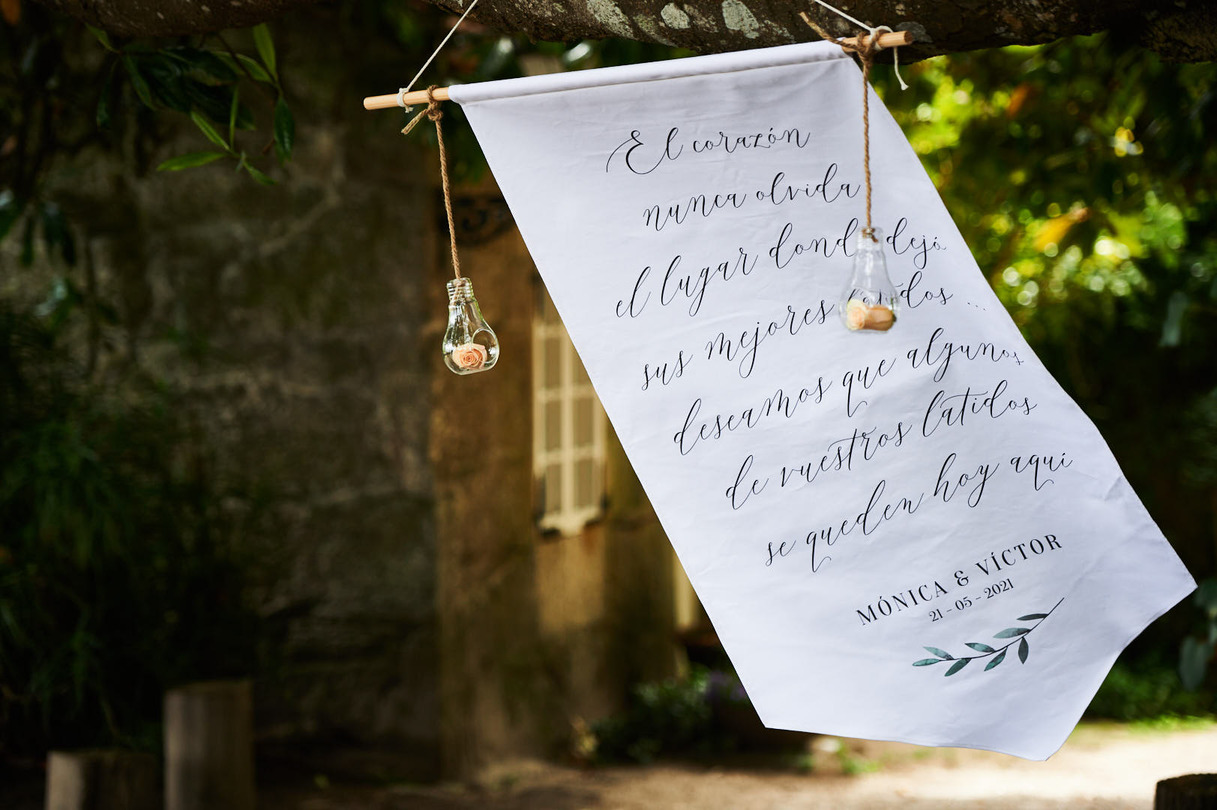 El corazón
nunca olvida
el lugar donde dejó
sus mejores latidos ...
deseamos que algunos
de vuestros latidos
se queden hoy aquí
MÓNICA & VÍCTOR
21 - 05 - 2021